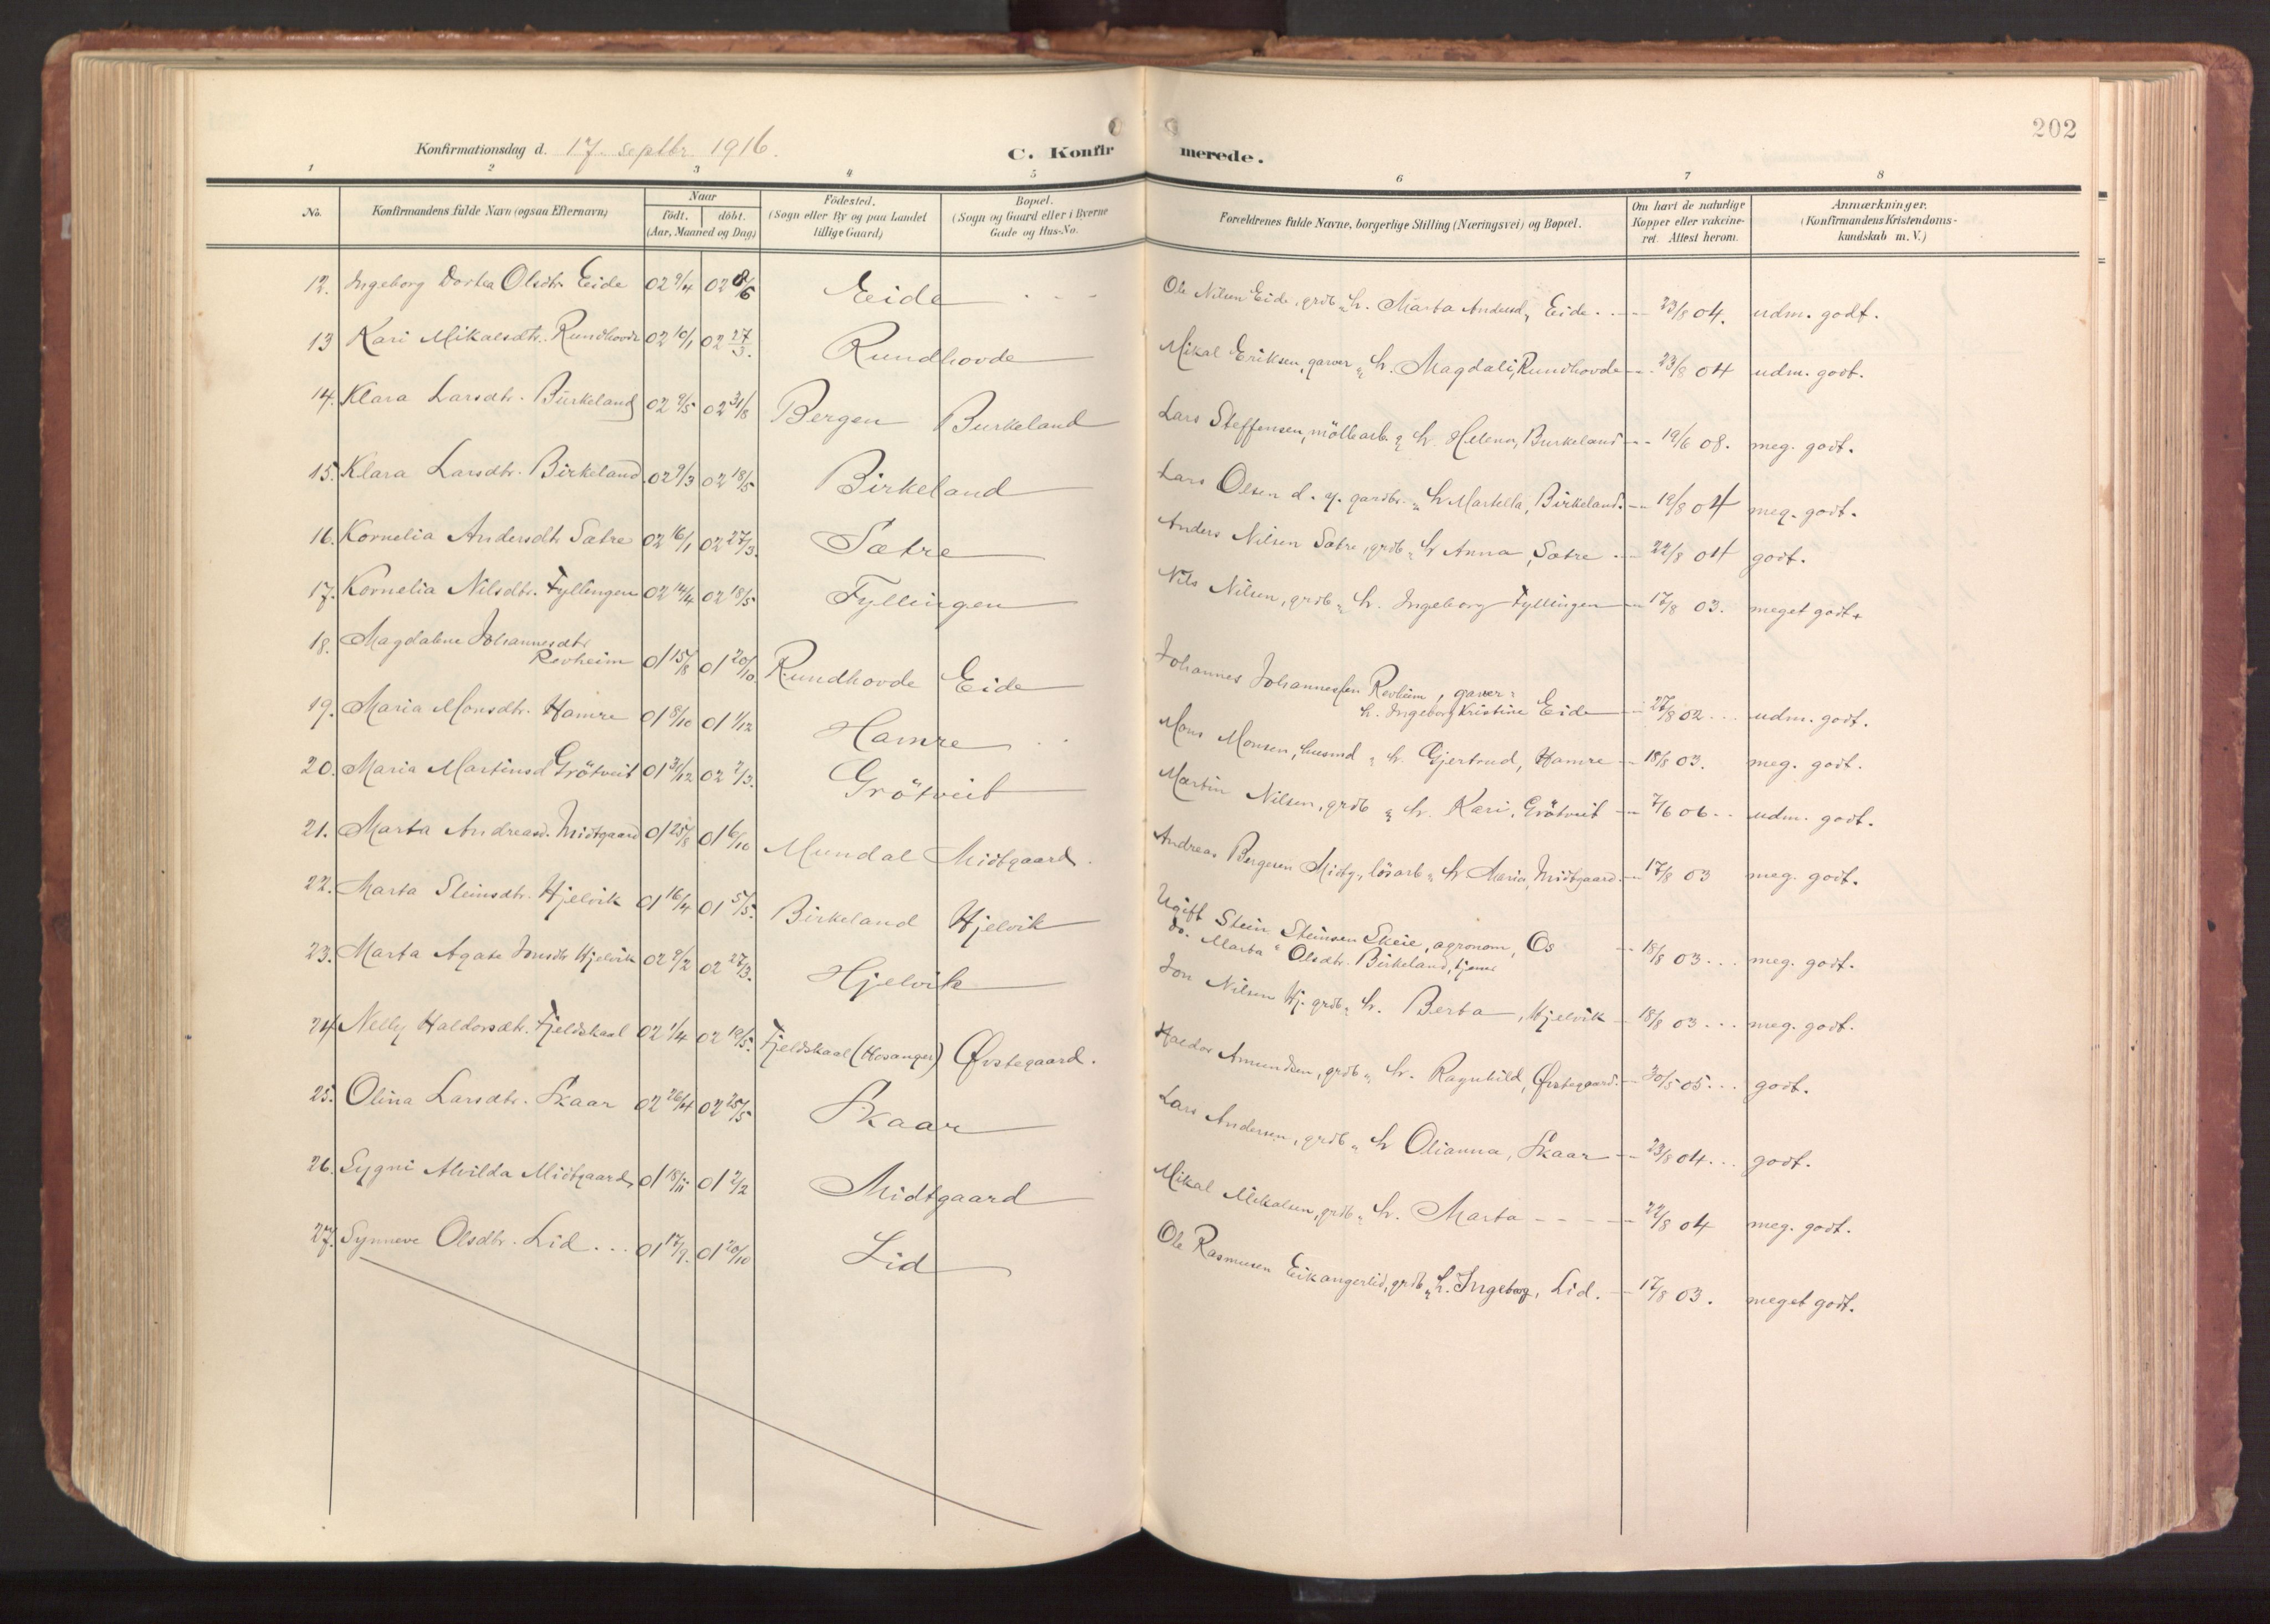 202
Konfirmationsdag d. 17. septbr. 1916.
C. Konfirmerede.
1 2 3 4 5 6 7 8
No. Konfirmandens fulde Navn (ogsaa Efternavn) Naar födt. döbt. (Aar, Maaned og Dag) Födested. (Sogn eller By og paa Landet tillige Gaard) Bopæl. (Sogn og Gaard eller i Byerne Gade og Hus-No. Forældrenes fulde Navne, borgerlige Stilling (Næringsvei) og Bopæl. Om havt de naturlige Kopper eller vakcineret. Attest herom. Anmærkninger. (Konfirmandens Kristendomskundskab m. V.)
12. Ingeborg Dortea Olsdtr. Eide 02 9/4 02 8/6 Eide Ole Nilsen Eide, grdb. „ h. Marta Andersd., Eide. 23/8 04. udm. godt.
13 Kari Mikalsdtr. Rundhovde 02 10/1 02 27/3. Rundhovde Mikal Eriksen, garver „ h. Magdali, Rundhovde 23/8 04 udm. godt.
14. Klara Larsdtr. Burkeland 02 9/5 02 31/8 Bergen Burkeland Lars Steffensen, möllearb. „ h. Helena, Burkeland 19/6 08. meg. godt.
15. Klara Larsdtr. Birkeland 02 9/3 02 18/5 Birkeland Lars Olsen d. y. gardbr. „ h. Martella, Birkeland. 19/8 04 meg. godt.
16. Kornelia Andersdtr. Sætre 02 16/1 02 27/3. Sætre Anders Nilsen Sætre, grdb. „ h. Anna, Sætre 22/8 04 godt.
17. Kornelia Nilsdtr. Fyllingen 02 14/4 02 18/5 Fyllingen Nils Nilsen, grdb. „ h. Ingeborg Fyllingen 17/8 03. meget godt.
18. Magdalene Johannesdtr. Revheim 01 15/8 01 20/10. Rundhovde Eide Johannes Johannessen Revheim, garver „
h. Ingeborg Kristine Eide 27/8 02 udm. godt.
19. Maria Monsdtr. Hamre 01 8/10 01 1/12 Hamre Mons Monsen, husmd. „ h. Gjertrud, Hamre 18/8 03. meg. godt.
20. Maria Martinsd. Grötveit 01 31/12 02 2/3. Grötveit Martin Nilsen, grdb. „ h. Kari, Grötveit 7/6 06 udm. godt.
21. Marta Andreasd. Midtgaard 01 25/8 01 6/10 Mundal Midtgaard. Andreas Bergesen Midtg., lösarb. „ h. Maria, Midtgaard 17/8 03 meg. godt.
22. Marta Steinsdtr. Hjelvik 01 16/4 01 5/5. Birkeland Hjelvik Ugift Stein Steinsen Skeie, agronom, Os
do. Marta Olsdtr. Birkeland, tjener 18/8 03 meg. godt.
23. Marta Agate Jonsdtr. Hjelvik 02 9/2 02 27/3. Hjelvik Jon Nilsen Hj. grdb. „ h. Berta, Hjelvik 18/8 03 meg. godt.
24 Nelly Haldorsdtr. Fjeldskaal 02 1/4 02 19/5. Fjeldskaal (Hosanger) Øvstegaard. Haldor Amundsen, grdb. „ h. Ragnhild, Øvstegaard. 30/5 05 godt.
25. Olina Larsdtr. Skaar 02 26/4 02 25/5 Skaar Lars Andersen, grdb. „ h. Olianna, Skaar 23/8 04 godt.
26. Sygni Alvilda Midtgaard 01 18/11 01 2/2 Midtgaard Mikal Mikalsen, grdb. „ h. Marta 22/8 04 meg. godt.
27. Synneve Olsdtr. Lid 01 17/9. 01 20/10 Lid Ole Rasmusen Eikangerlid, grdb. „ h. Ingeborg, Lid. 17/8 03. meget godt.